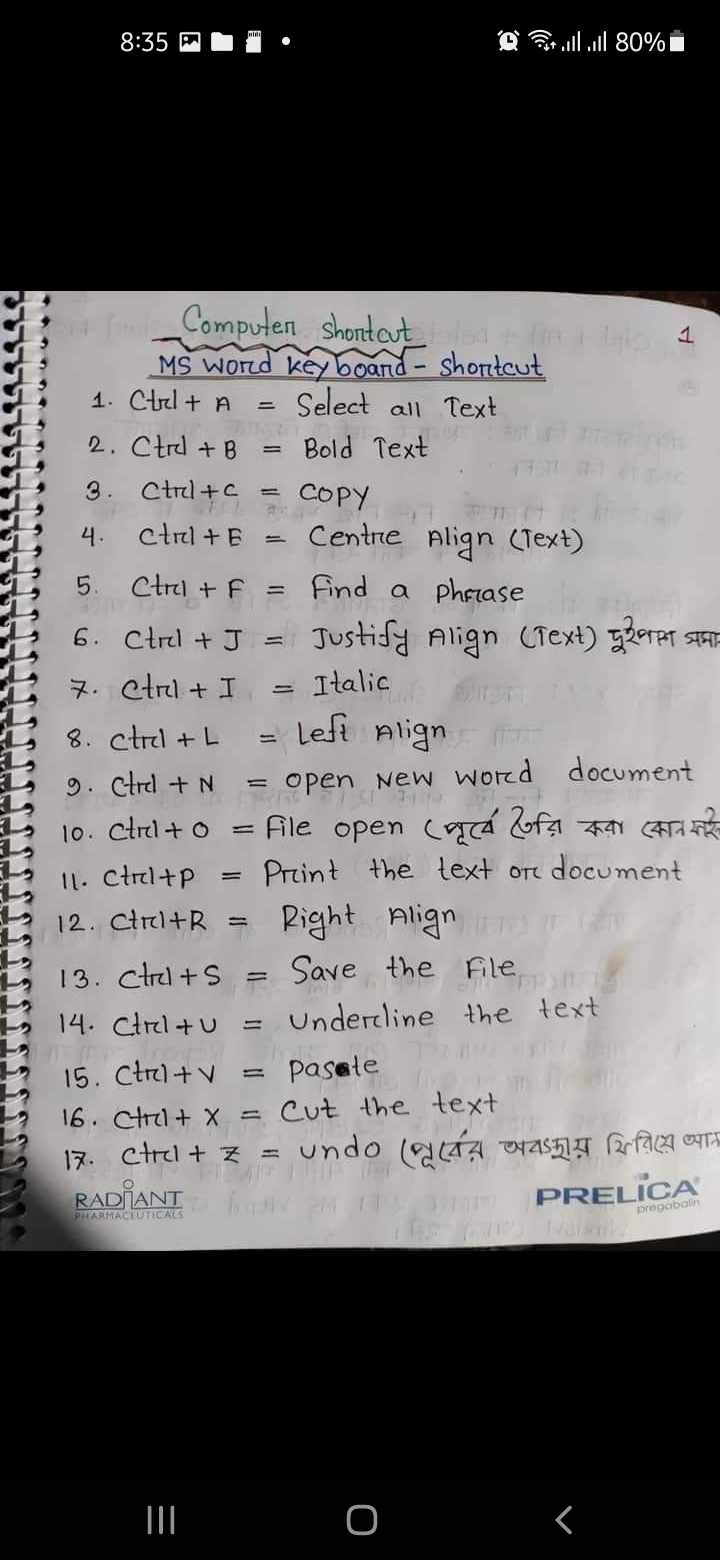 8:35
80%
Computer shortcut
1
MS Word keyboard - shortcut
1. Ctrl + A = Select all Text
2. Ctrl + B = Bold Text
3. Ctrl + C = Copy
4. Ctrl + E = Centre Align (Text)
5. Ctrl + F = Find a phrase
6. Ctrl + J = Justify Align (Text) দুইপাশ সমা
7. Ctrl + I = Italic
8. Ctrl + L = Left Align
9. Ctrl + N = Open New Word document
10. Ctrl + O = File open (পূর্বে তৈরি করা কোন
11. Ctrl + P = Print the text or document
12. Ctrl + R = Right Align
13. Ctrl + S = Save the File
14. Ctrl + U = Underline the text
15. Ctrl + V = Paste
16. Ctrl + X = Cut the text
17. Ctrl + Z = undo (পূর্বের অবস্থায় ফিরিয়ে আন
RADIANT
PHARMACEUTICALS
PRELICA
pregabalin